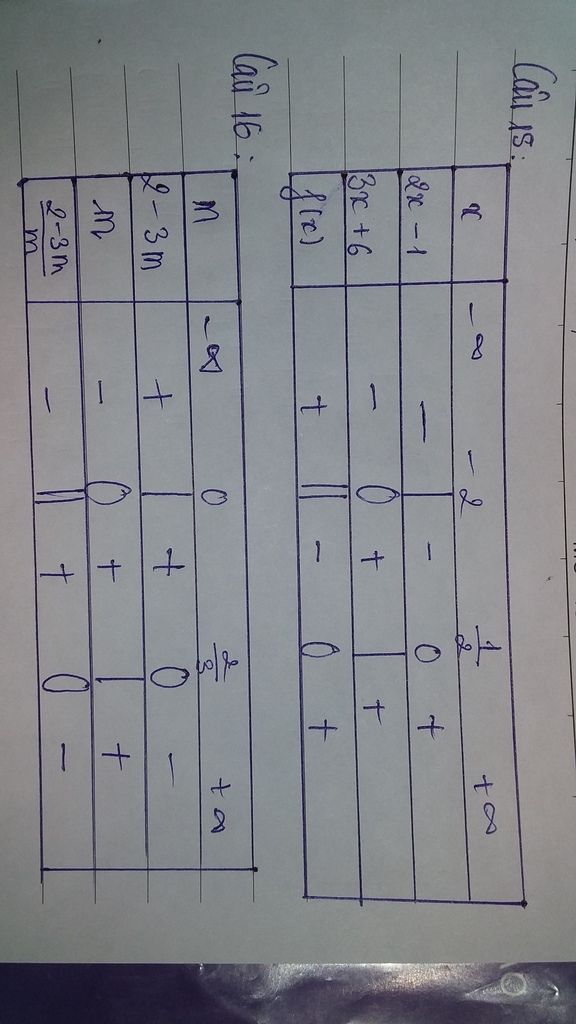 Câu 15:
x -∞ -2 1/2 +∞
2x - 1 - | - 0 +
3x + 6 - 0 + | +
f(x) + || - 0 +
Câu 16:
m -∞ 0 2/3 +∞
2 - 3m + | + 0 -
m - 0 + | +
2-3m/m - || + 0 -